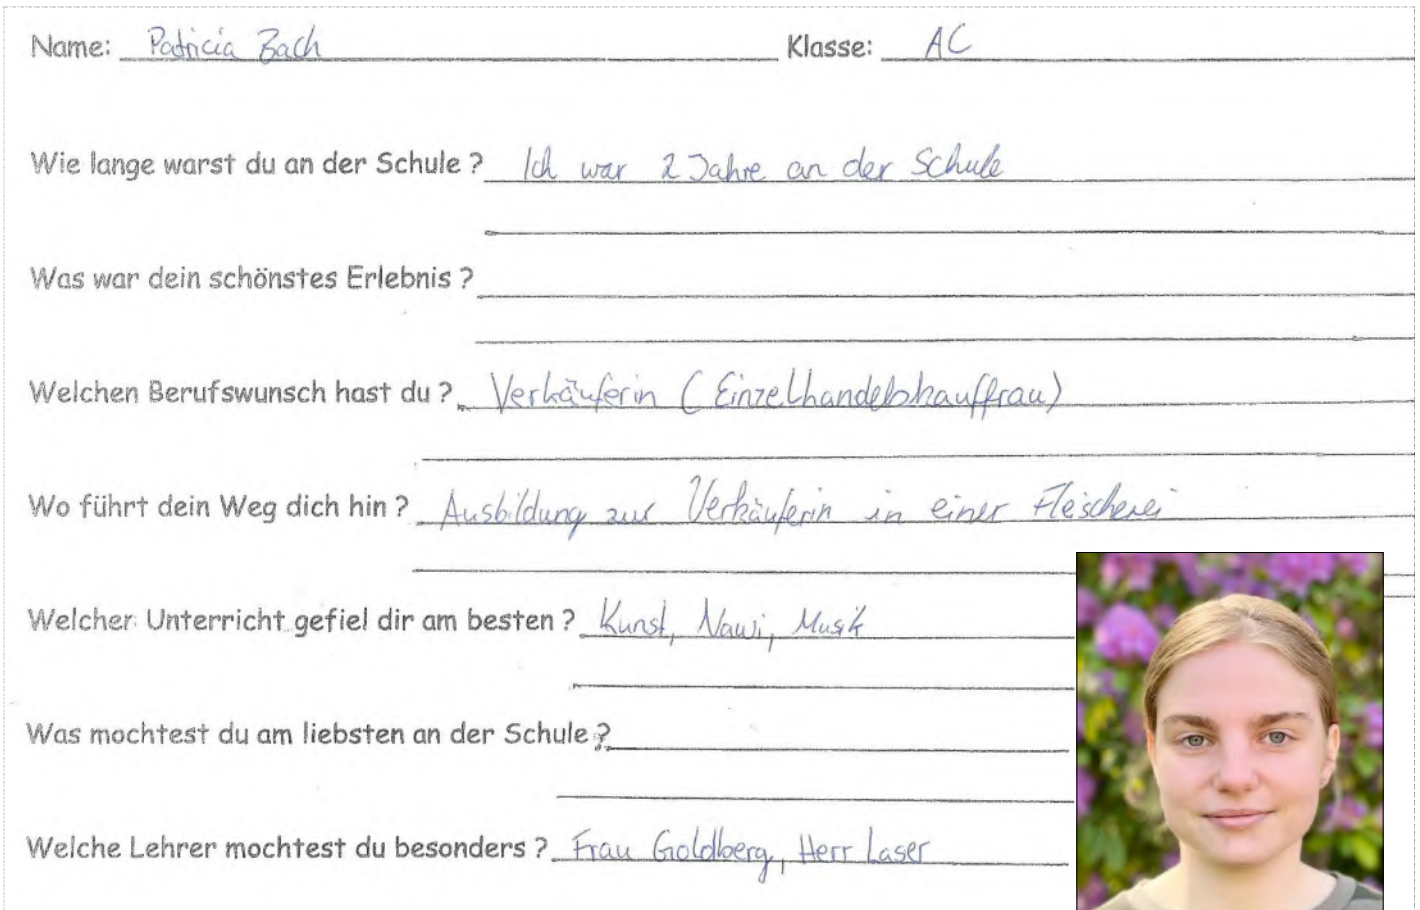 Name: Patricia Bach Klasse: AC
Wie lange warst du an der Schule ? Ich war 2 Jahre an der Schule
Was war dein schönstes Erlebnis ?
Welchen Berufswunsch hast du ? Verkäuferin (Einzelhandelskauffrau)
Wo führt dein Weg dich hin ? Ausbildung zur Verkäuferin in einer Fleischerei
Welcher Unterricht gefiel dir am besten ? Kunst, Nawi, Musik
Was mochtest du am liebsten an der Schule ?
Welche Lehrer mochtest du besonders ? Frau Goldberg, Herr Laser